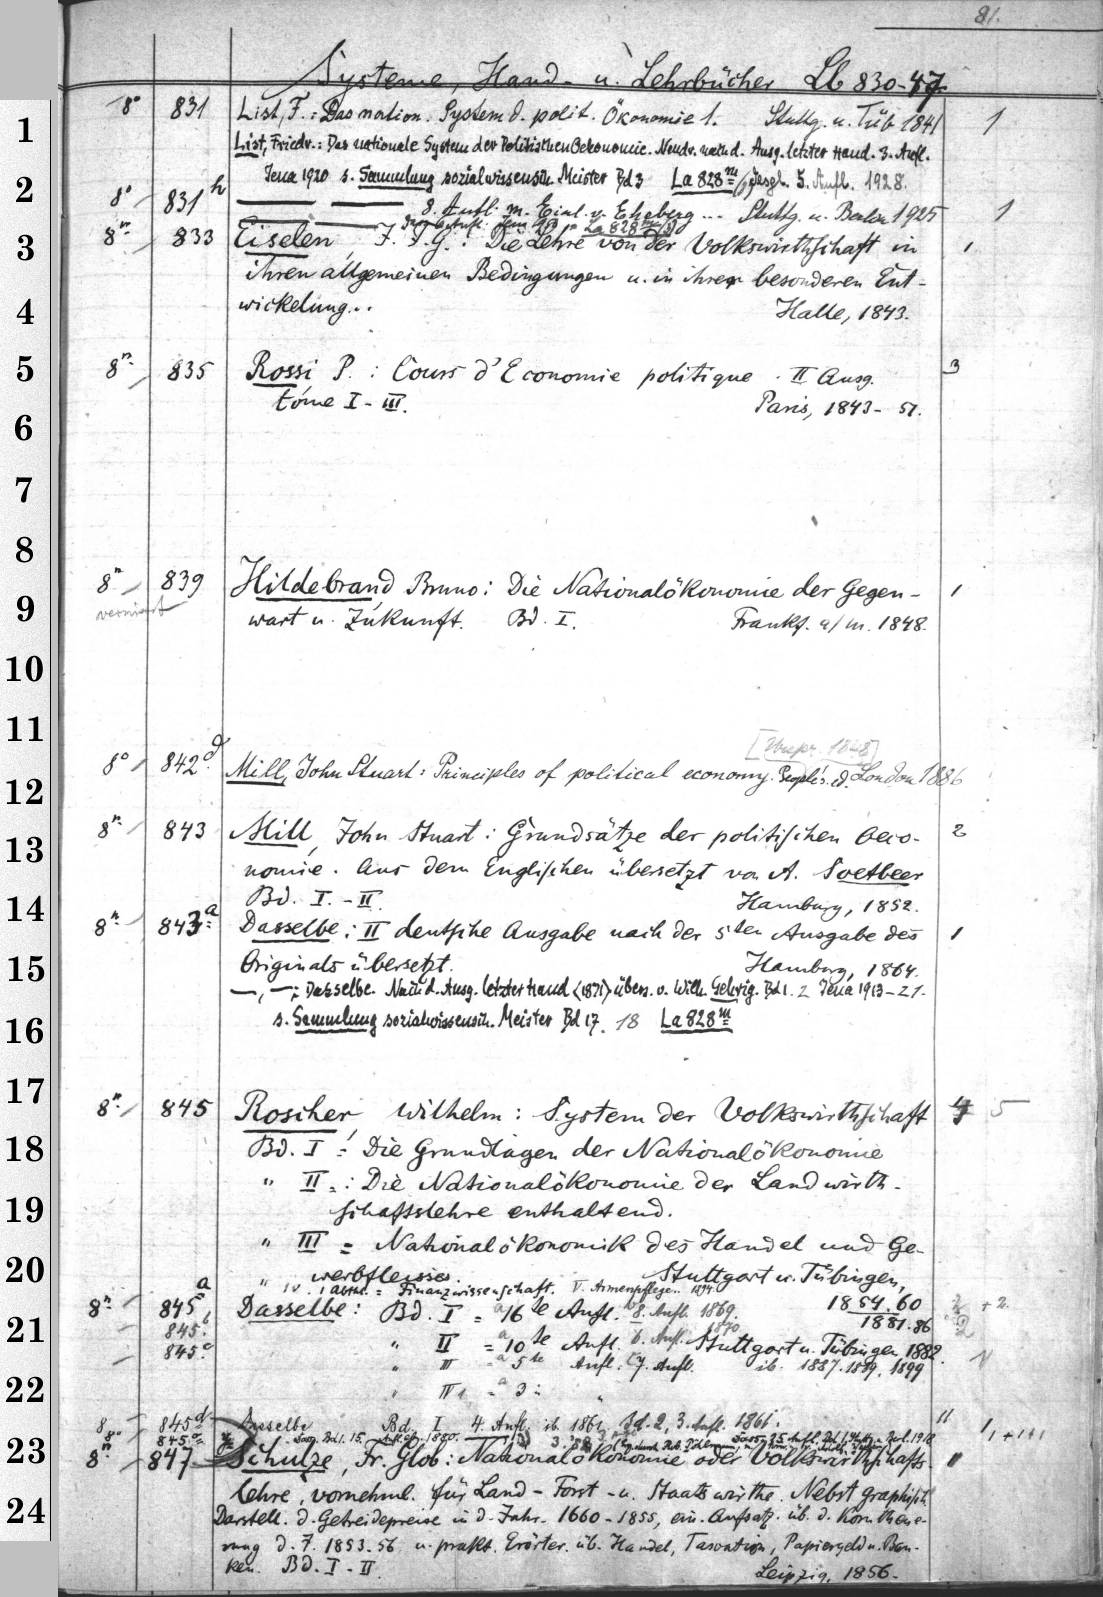 81.
Systeme, Hand- u. Lehrbücher Lb 830-47
1 8° 831 List, F.: Das nation. System d. polit. Ökonomie 1. Stuttg. u. Tüb. 1841 1
List, Friedr.: Das nationale System der Politischen Oekonomie. Neudr. nach d. Ausg. letzter Hand. 3. Aufl.
2 Jena 1920 s. Sammlung sozialwissensch. Meister Bd 3 La 828 m desgl. 5. Aufl. 1928.
8° 831 h 8. Aufl. m. Einl. v. Eheberg ... Stuttg. u. Berlin 1925 1
3 8° 833 Eiselen, J. F. G.: Die Lehre von der Volkswirthschaft in 1
ihren allgemeinen Bedingungen u. in ihrer besonderen Ent-
4 wickelung.. Halle, 1843.
5 8° 835 Rossi P.: Cours d'Economie politique. II Ausg. 3
tome I-III. Paris, 1843-51.
6
7
8
8° 839 Hildebrand Bruno: Die Nationalökonomie der Gegen- 1
9 vermisst wart u. Zukunft. Bd. I. Frankf. a/m. 1848.
10
11
[Urspr. 1848]
8° 842 d Mill, John Stuart: Principles of political economy. People's ed. London 1886
12
8° 843 Mill, John Stuart: Grundsätze der politischen Oeco- 2
13 nomie. Aus dem Englischen übersetzt von A. Soetbeer
14 Bd. I.-II. Hamburg, 1852.
8° 843 a Dasselbe: II deutsche Ausgabe nach der 5ten Ausgabe des 1
15 Originals übersetzt. Hamburg, 1864.
—, —: Dasselbe. Nach d. Ausg. letzter Hand (1871) übers. v. Wilh. Gehrig. Bd 1. 2 Jena 1913-21.
16 s. Sammlung sozialwissensch. Meister Bd 17. 18 La 828 m
17 8° 845 Roscher, Wilhelm: System der Volkswirthschaft 4 5
18 Bd. I = Die Grundlagen der Nationalökonomie
" II.: Die Nationalökonomie der Landwirth-
19 schaftslehre enthaltend.
" III = Nationalökonomik des Handel und Ge-
20 werbfleisses. Stuttgart u. Tübingen,
" IV. 1 Abth. = Finanzwissenschaft. V. Armenpflege. 1894 1854.60
8° 845 a Dasselbe: Bd. I = 16te Aufl. 8. Aufl. 1869. 1881.86 + 2
21 845 b " II = 10te Aufl. 6. Aufl. 1870 Stuttgart u. Tübingen 1882.
845 c " III = 5te Aufl. 7. Aufl. ib. 1887. 1889. 1899
22 " III = 3
8° 845 d Dasselbe Bd. I 4. Aufl. ib. 1861, Bd. 2, 3. Aufl. 1861. 11 1
23 8° 847 Schulze, Fr. Glob: Nationalökonomie oder Volkswirthschafts-
24 lehre, vornehml. für Land- Forst- u. Staatswirthe. Nebst graphisch.
Darstell. d. Getreidepreise in d. Jahr. 1660-1855, ein. Aufsatz. üb. d. Korntheue-
rung d. J. 1853-56 u. prakt. Erörter. üb. Handel, Taxation, Papiergeld u. Ban-
ken. Bd. I-II. Leipzig, 1856.